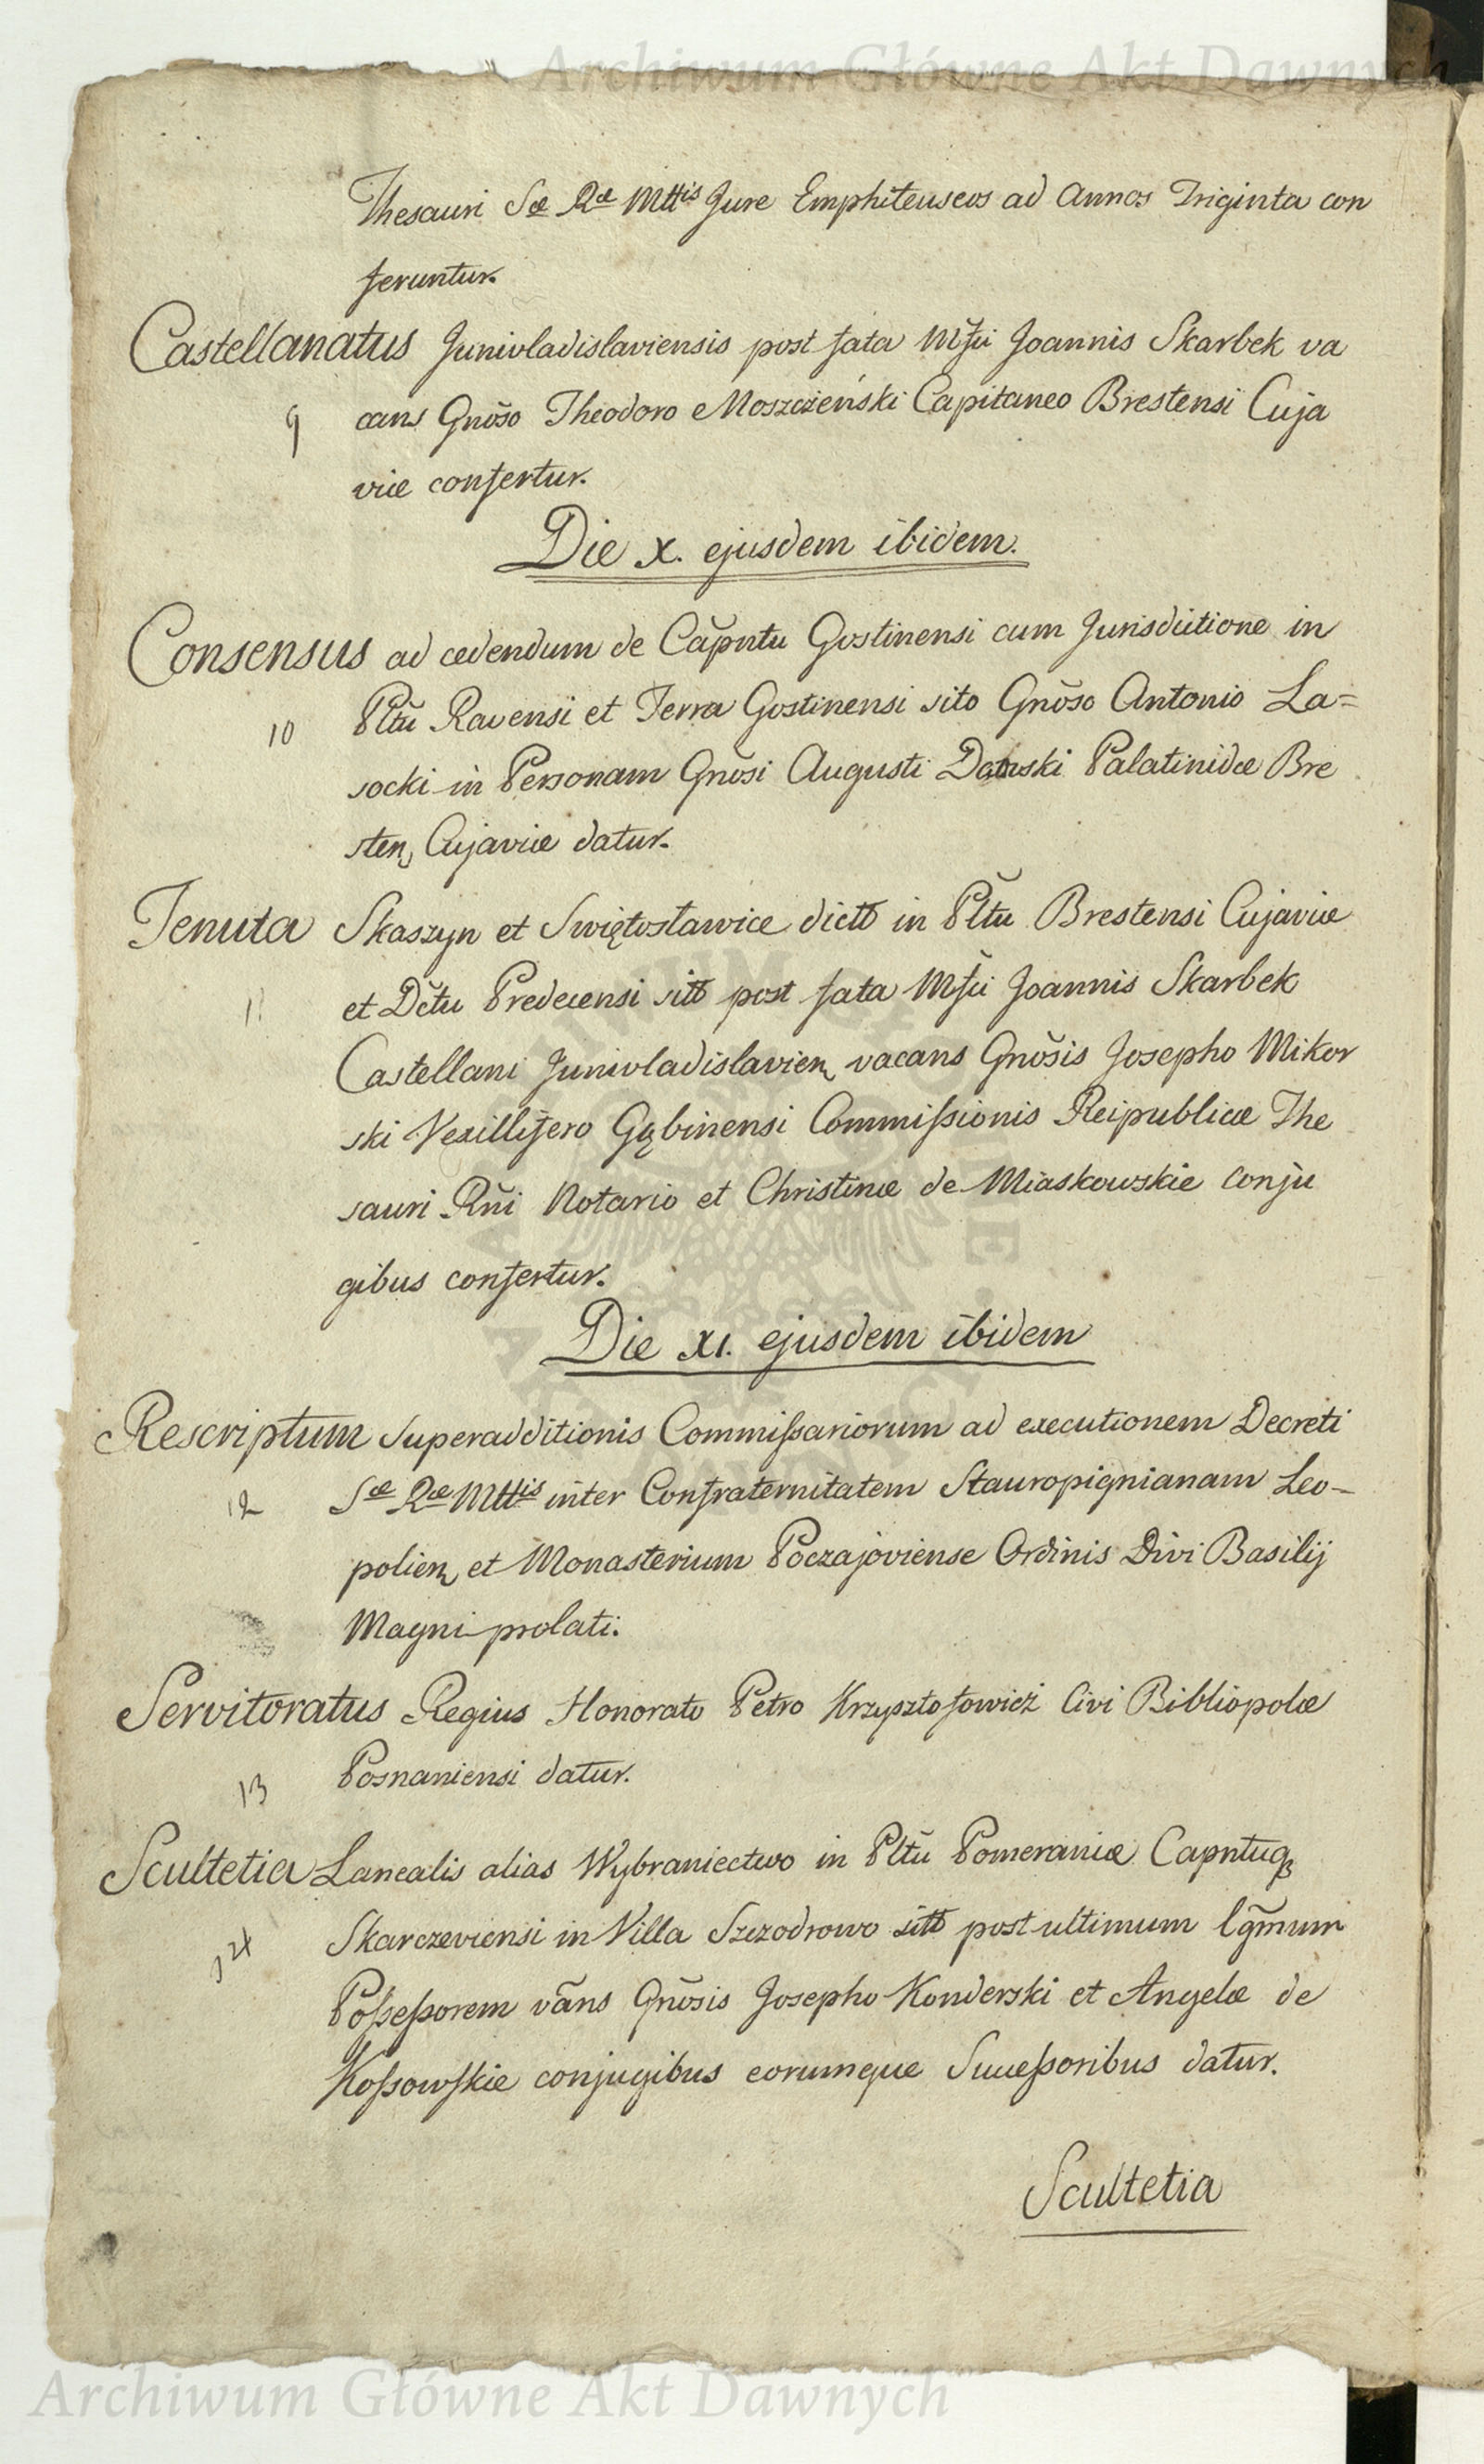 Archiwum Główne Akt Dawnych
Thesauri Sæ Ræ Mttis Jure Emphiteuseos ad Annos Triginta con
feruntur.
Castellanatus Junivladislaviensis post fata Mfci Joannis Skarbek va
9 cans Gnōso Theodoro Moszczeński Capitaneo Brestensi Cuja
viæ confertur.
Die X. ejusdem ibidem.
Consensus ad cedendum de Capntu Gostinensi cum Jurisdictione in
10 Pltu Ravensi et Terra Gostinensi sito Gnōso Antonio La=
socki in Personam Gnōsi Augusti Dąbski Palatinidæ Bre
sten, Cujaviæ datur.
Tenuta Skaszyn et Swiętosławice dict in Pltu Brestensi Cujaviæ
11 et Dctu Predecensi sitt post fata Mfci Joannis Skarbek
Castellani Junivladislavien, vacans Gnōsis Josepho Mikor
ski Vexillifero Gąbinensi Commissionis Reipublicæ The
sauri Rni Notario et Christinæ de Miaskowskie conju
gibus confertur.
Die XI. ejusdem ibidem
Rescriptum Superadditionis Commissariorum ad executionem Decreti
12 Sæ Ræ Mttis inter Confraternitatem Stauropignianam Leo-
polien, et Monasterium Poczajoviense Ordinis Divi Basilij
Magni prolati.
Servitoratus Regius Honorato Petro Krzysztofowicż Civi Bibliopolæ
13 Posnaniensi datur.
Scultetia Lanealis alias Wybraniectwo in Pltu Pomeraniæ Capntuq
14 Skarczeviensi in Villa Szczodrowo sitt post ultimum lgmum
Possessorem vāns Gnōsis Josepho Konderski et Angelæ de
Kossowskie conjugibus eorumque Successoribus datur.
Scultetia
Archiwum Główne Akt Dawnych